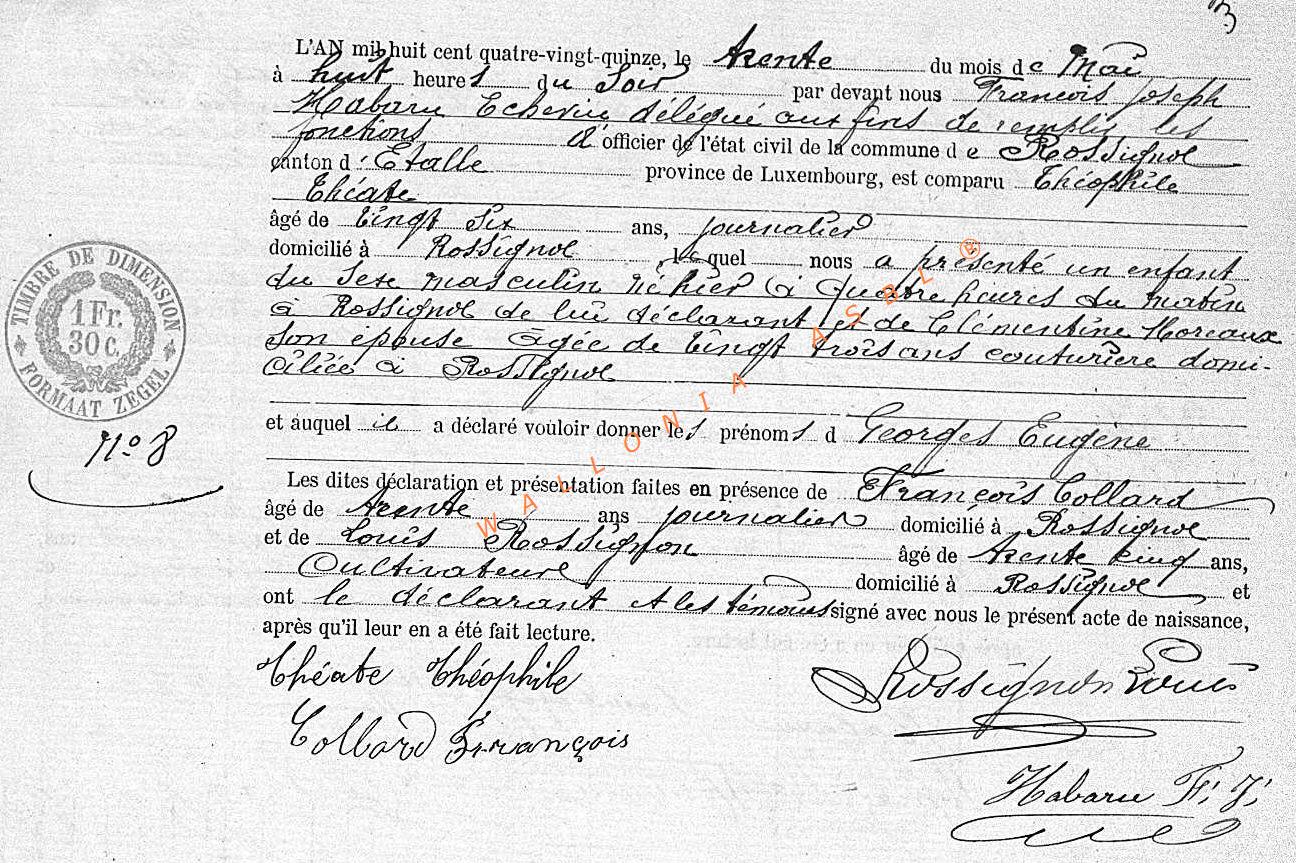 L'AN mil huit cent quatre-vingt-quinze, le trente du mois de Mai
à huit heures du Soir par devant nous François Joseph
Habaru Echevin délégué aux fins de remplir les
fonctions d'officier de l'état civil de la commune de Rossignol
canton d'Etalle province de Luxembourg, est comparu Théophile
Théate
âgé de Vingt Six ans, journalier
domicilié à Rossignol lequel nous a présenté un enfant
du Sexe masculin né hier à quatre heures du matin
à Rossignol de lui déclarant et de Clémentine Moreaux
Son épouse âgée de Vingt trois ans couturière domi-
ciliée à Rossignol
et auquel il a déclaré vouloir donner les prénoms d Georges Eugène
Les dites déclaration et présentation faites en présence de François Collard
âgé de trente ans journalier domicilié à Rossignol
et de Louis Rossignon âgé de trente cinq ans,
Cultivateur domicilié à Rossignol et
ont le déclarant et les témoins signé avec nous le présent acte de naissance,
après qu'il leur en a été fait lecture.
Théate Théophile
Rossignon Louis
Collard François
Habaru F. J.
TIMBRE DE DIMENSION
1 Fr.
30 C.
FORMAAT ZEGEL
N° 8
WALLONIA ASBL ®